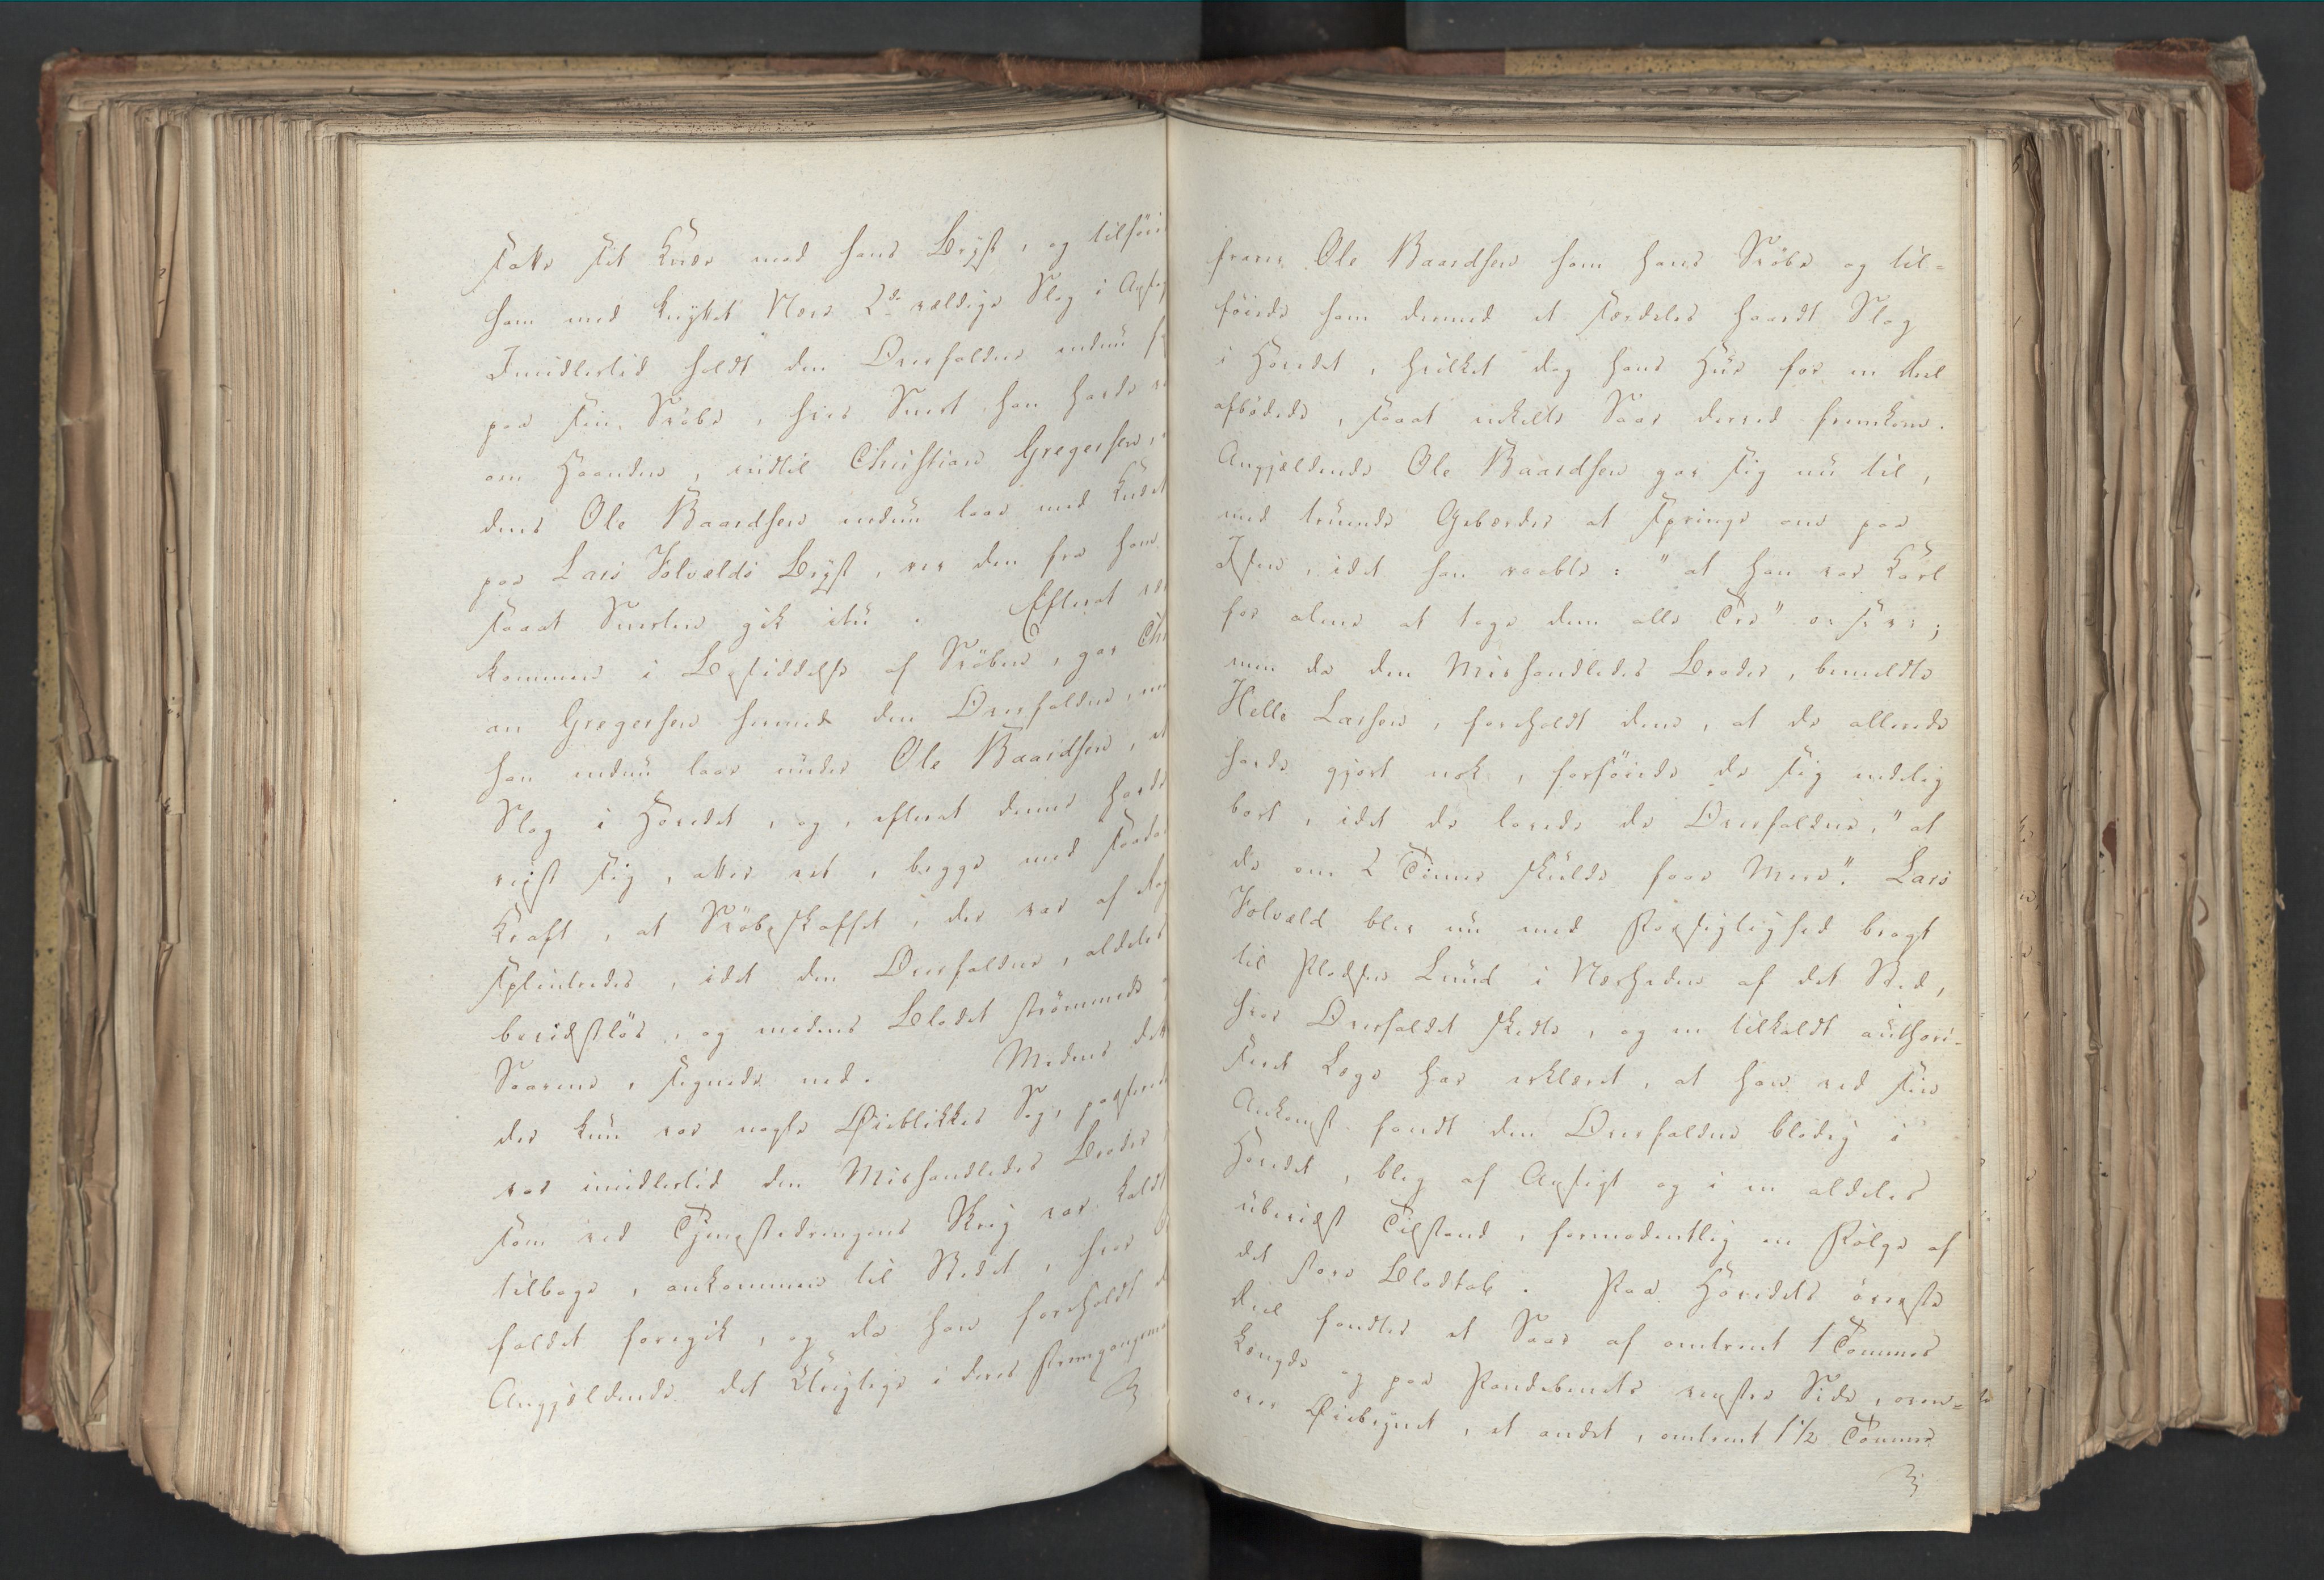 satte sit Knæe mod hans Bryst, og tilföie
ham med knyttet Næve 2de vældige Slag i Ansig
Imidlertid holdt den Overfaldne endnu
paa sin Svöbe, hvis Snert han havde
om Haanden, indtil Christian Gregersen,
dens Ole Baardsen endnu laae med Knæet
paa Lars Folvælds Bryst, rev den fra ham
saaat Snerten gik itu. Efterat
kommen i Besiddelse af Svöben, gav Chr
an Gregersen hermed den Overfaldne,
han endnu laae under Ole Baardsen, et
Slag i Hovedet, og, efterat denne havde
reist sig, atter eet, begge med saada
Kraft, at Svöbeskaftet, der var af
splintredes, idet den Overfaldne, aldeles
bevidstlös, og medens Blodet strömmede
Saarene, segnede ned. Medens dette
der kun var nogle Øieblikkes Sag, passerede
var imidlertid den Mishandledes Broder
som ved Tjenestedrengens Skrig var kaldt
tilbage, ankommen til Stedet, hvor
faldet foregik, og da han foreholdt
Angjældende det Utilbørlige i deres Fremgangsmaa
frem Ole Baardsen ham hans Svöbe og til-
föiede ham dermed et særdeles haardt Slag
i Hovedet, hvilket dog hans Hue for en Deel
afbödede, saaat intet Saar derved fremkom.
Angjældende Ole Baardsen gav sig nu til,
med truende Gebærder at springe om paa
Isen, idet han raabte: "at han var Karl
for alene at tage dem alle Tre" o: s: v:;
men da den Mishandledes Broder, bemeldte
Helle Larsen, foreholdt dem, at de allerede
havde gjort nok, forföiede de sig endelig
bort, idet de lovede de Overfaldne, "at
de om 2 Timer skulde faae Mere". Lars
Folvæld blev nu med Forsigtighed bragt
til Pladsen Lund i Nærheden af det Sted,
hvor Overfaldet skedte, og en tilkaldt authori-
seret Læge har erklæret, at han ved sin
Ankomst fandt den Overfaldne blodig i
Hovedet, bleg af Ansigt og i en aldeles
ubevidst Tilstand, formodentlig en Følge af
det store Blodtab. Paa Hovedets överste
Deel fandtes et Saar af omtrent 1 Tommes
Længde og paa Pandebenets venstre Side, oven-
over Øiebrynet, et andet, omtrent 1½ Tomme